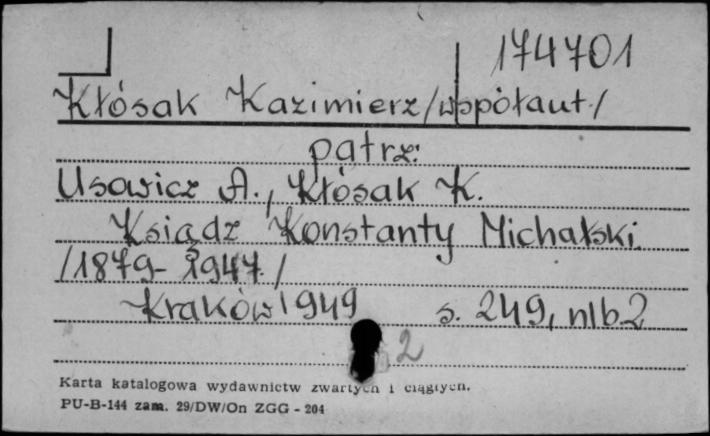 174701
Kłósak Kazimierz /współaut./
patrz:
Usowicz A., Kłósak K.
Ksiądz Konstanty Michalski
/1879-1947./
Kraków 1949 s. 249, nlb. 2
2
Karta katalogowa wydawnictw zwartych i ciągłych.
PU-B-144 zam. 29/DW/On ZGG - 204